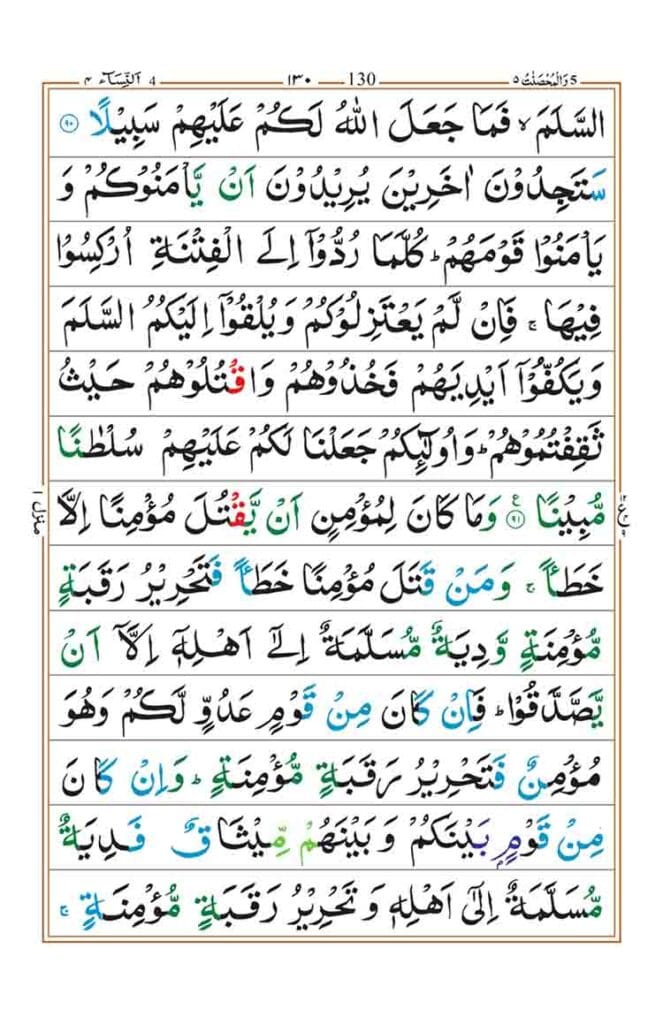 وَالْمُحْصَنٰتُ ٥ 5 130 ١٣٠ 4 اَلنِّسَآء ٤
السَّلَمَ ۙ فَمَا جَعَلَ اللّٰهُ لَكُمْ عَلَيْهِمْ سَبِيْلًا ﴿٩٠﴾
سَتَجِدُوْنَ اٰخَرِيْنَ يُرِيْدُوْنَ اَنْ يَّاْمَنُوْكُمْ وَ
يَاْمَنُوْا قَوْمَهُمْ ؕ كُلَّمَا رُدُّوْۤا اِلَى الْفِتْنَةِ اُرْكِسُوْا
فِيْهَا ۚ فَاِنْ لَّمْ يَعْتَزِلُوْكُمْ وَيُلْقُوْۤا اِلَيْكُمُ السَّلَمَ
وَيَكُفُّوْۤا اَيْدِيَهُمْ فَخُذُوْهُمْ وَاقْتُلُوْهُمْ حَيْثُ
ثَقِفْتُمُوْهُمْ ؕ وَاُولٰٓئِكُمْ جَعَلْنَا لَكُمْ عَلَيْهِمْ سُلْطٰنًا
مُّبِيْنًا ﴿٩١﴾ ع وَمَا كَانَ لِمُؤْمِنٍ اَنْ يَّقْتُلَ مُؤْمِنًا اِلَّا
منزل ١
خَطَـًٔا ۚ وَمَنْ قَتَلَ مُؤْمِنًا خَطَـًٔا فَتَحْرِيْرُ رَقَبَةٍ
مُّؤْمِنَةٍ وَّدِيَةٌ مُّسَلَّمَةٌ اِلٰٓى اَهْلِهٖۤ اِلَّاۤ اَنْ
يَّصَّدَّقُوْا ؕ فَاِنْ كَانَ مِنْ قَوْمٍ عَدُوٍّ لَّكُمْ وَهُوَ
مُؤْمِنٌ فَتَحْرِيْرُ رَقَبَةٍ مُّؤْمِنَةٍ ؕ وَاِنْ كَانَ
مِنْ قَوْمٍۭ بَيْنَكُمْ وَبَيْنَهُمْ مِّيْثَاقٌ فَدِيَةٌ
مُّسَلَّمَةٌ اِلٰٓى اَهْلِهٖ وَتَحْرِيْرُ رَقَبَةٍ مُّؤْمِنَةٍ ۚ